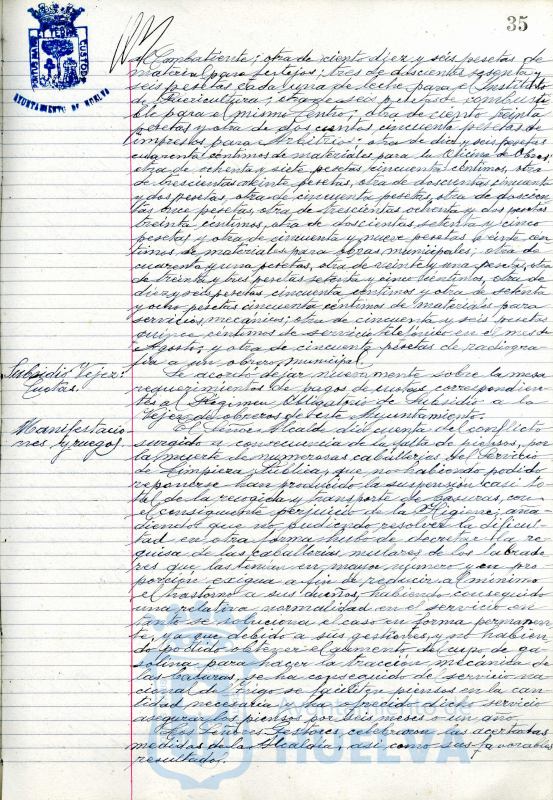 35
AYUNTAMIENTO DE HUELVA
Combatiente; otra de ciento diez y seis pesetas de
material para festejos; tres de doscientas sesenta y
seis pesetas cada una de leche para el Instituto
de Puericultura; otra de seis pesetas de combusti-
ble para el mismo Centro; otra de ciento treinta
pesetas y otra de doscientos cincuenta pesetas de
impresos para Arbitrios; otra de diez y seis pesetas
cuarenta céntimos de materiales para la Oficina de Obras;
otra de ochenta y siete pesetas cincuenta céntimos, otra
de trescientas veinte pesetas, otra de doscientas cincuenta
y dos pesetas, otra de cincuenta pesetas, otra de doscien-
tas once pesetas, otra de trescientas ochenta y dos pesetas
treinta céntimos, otra de doscientas setenta y cinco
pesetas y otra de cincuenta y nueve pesetas veinte cén-
timos de materiales para obras municipales; otra de
cuarenta y una pesetas, otra de veinte y una pesetas, otra
de treinta y tres pesetas setenta y cinco céntimos, otra de
diez y seis pesetas cincuenta céntimos y otra de setenta
y ocho pesetas cincuenta céntimos de materiales para
servicios mecánicos; otra de cincuenta y seis pesetas
quince céntimos de servicio telefónico en el mes de
Agosto; y otra de cincuenta pesetas de radiogra-
fia a un obrero municipal.
Subsidio Vejez:
Cuotas.
Se acordó dejar nuevamente sobre la mesa
requerimientos de pagos de cuotas correspondien-
tes al Régimen Obligatorio de Subsidio a la
Vejez de obreros de este Ayuntamiento.
Manifestacio-
nes y ruegos
El Señor Alcalde dió cuenta del conflicto
surgido a consecuencia de la falta de piensos, por
la muerte de numerosas caballerías del Servicio
de Limpieza Pública, que no habiendo podido
reponerse han producido la suspensión casi to-
tal de la recogida y transporte de basuras, con
el consiguiente perjuicio de la Higiene; aña-
diendo que no pudiendo resolver la dificul-
tad en otra forma hubo de decretar la re-
quisa de las caballerías mulares de los labrado-
res que las tenían en mayor número y en pro-
porción exigua a fin de reducir al mínimo
el trastorno a sus dueños, habiendo conseguido
una relativa normalidad en el servicio en
tanto se soluciona el caso en forma permanen-
te, ya que debido a sus gestiones, y no habien-
do podido obtener el aumento de cupo de ga-
solina para hacer la tracción mecánica de
las basuras, se ha conseguido del servicio na-
cional del trigo se faciliten piensos en la can-
tidad necesaria a los precios de servicio
asegurar los piensos por seis meses o un año.
Los Señores Gestores celebraron las acertadas
medidas de la Alcaldía, así como sus favorables
resultados.
Ayuntamiento de
HUELVA